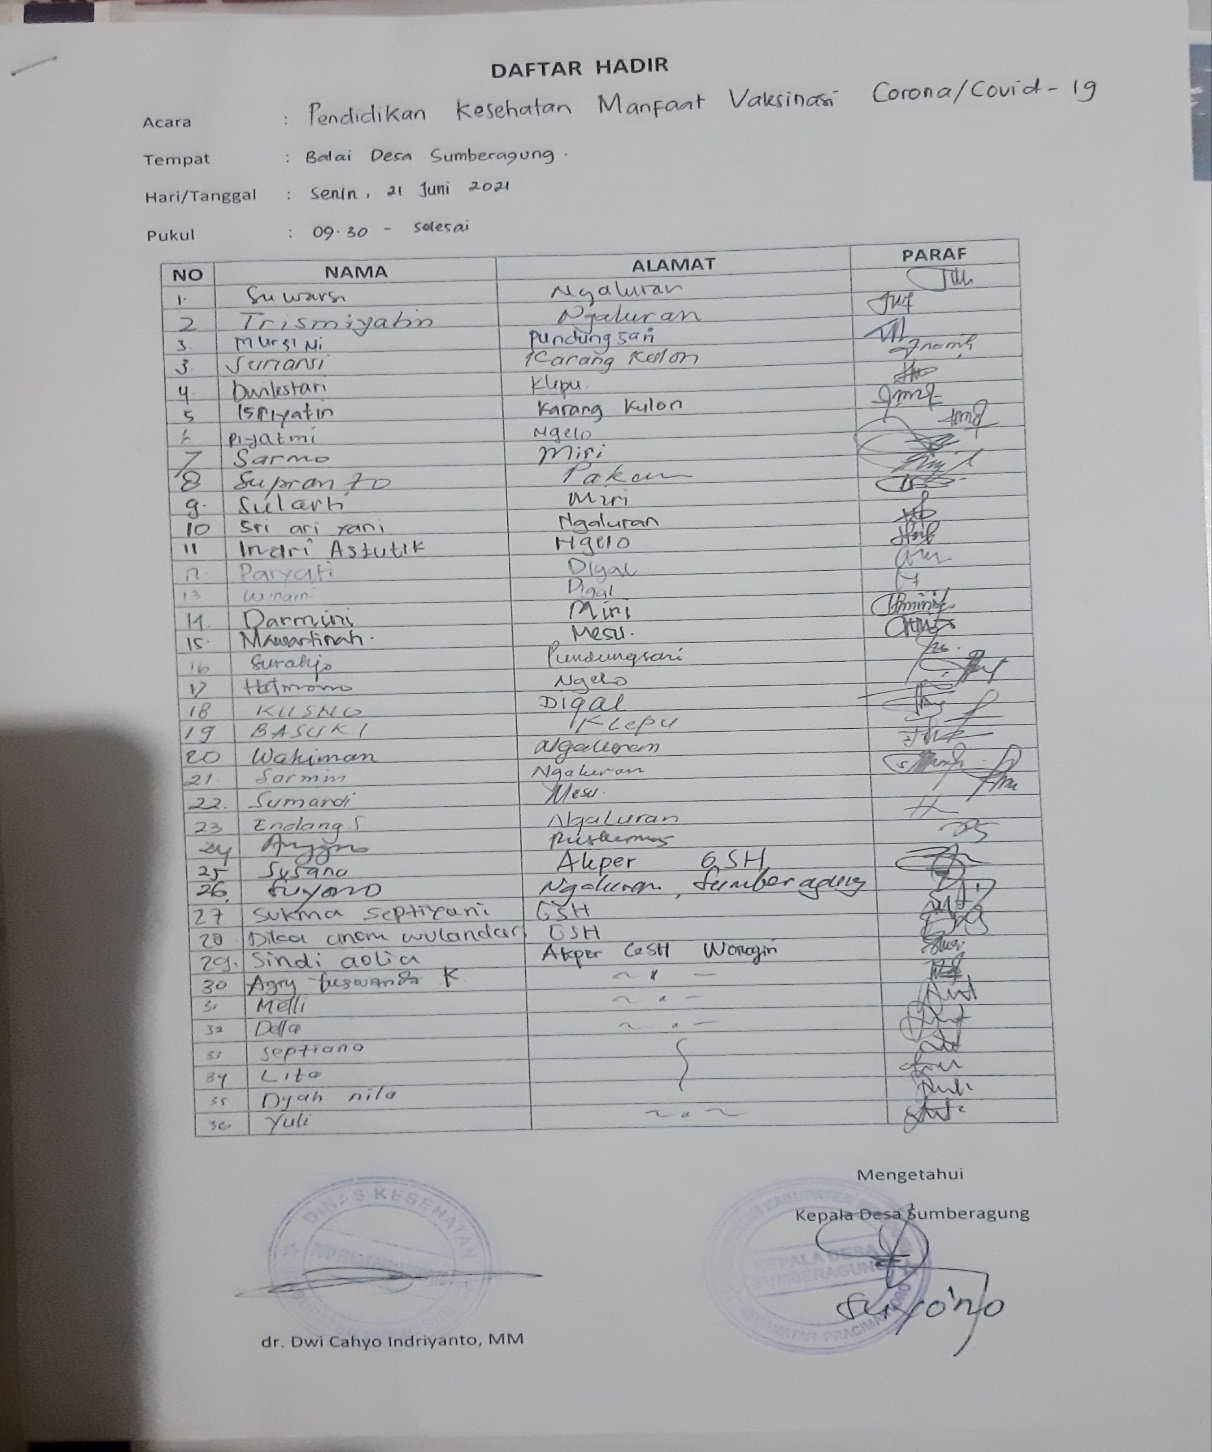 DAFTAR HADIR
Acara : Pendidikan Kesehatan Manfaat Vaksinasi Corona/Covid-19
Tempat : Balai Desa Sumberagung.
Hari/Tanggal : Senin, 21 Juni 2021
Pukul : 09.30 - selesai
NO NAMA ALAMAT PARAF
1. Suwarsi Ngaluran
2 Trismiyatin Ngaluran
3. MursiNi Pundungsari
3. Karang Kulon
4. Klepu.
5 Isriyatin Karang Kulon
Piyatmi Ngelo
7 Sarmo Miri
8 Supranto
9. Sularti Miri
10 Sri ari yani Ngaluran
11 Indri Astutik Ngelo
12. Paryati Digal
13 Winarni Digal
14. Darmini Miri
15. Mawartinah. Mesu.
16 Pundungsari
17 Ngelo
18 KUSNO DIGAL
19 BASUKI Klepu
20 Wakiman Ngaluran
21 Sarmin Ngaluran
22. Sumardi Mesu.
23 Endang S Ngaluran
24 Puskesmas
25 Susana Akper GSH
26. Suyono Ngaluran, Sumberagung
27 Sukma Septiyani GSH
28 Dilca anom wulandari GSH
29. Sindi aolia Akper GSH Wonogiri
30 K ~ " -
31 Melli ~ " -
32 Della ~ " -
33 Septiano
34 Lita
35 Dyah nila
36 Yuli ~ " ~
Mengetahui
Kepala Desa Sumberagung
DINAS KESEHATAN
KEPALA DESA
SUMBERAGUNG
Suyono
dr. Dwi Cahyo Indriyanto, MM